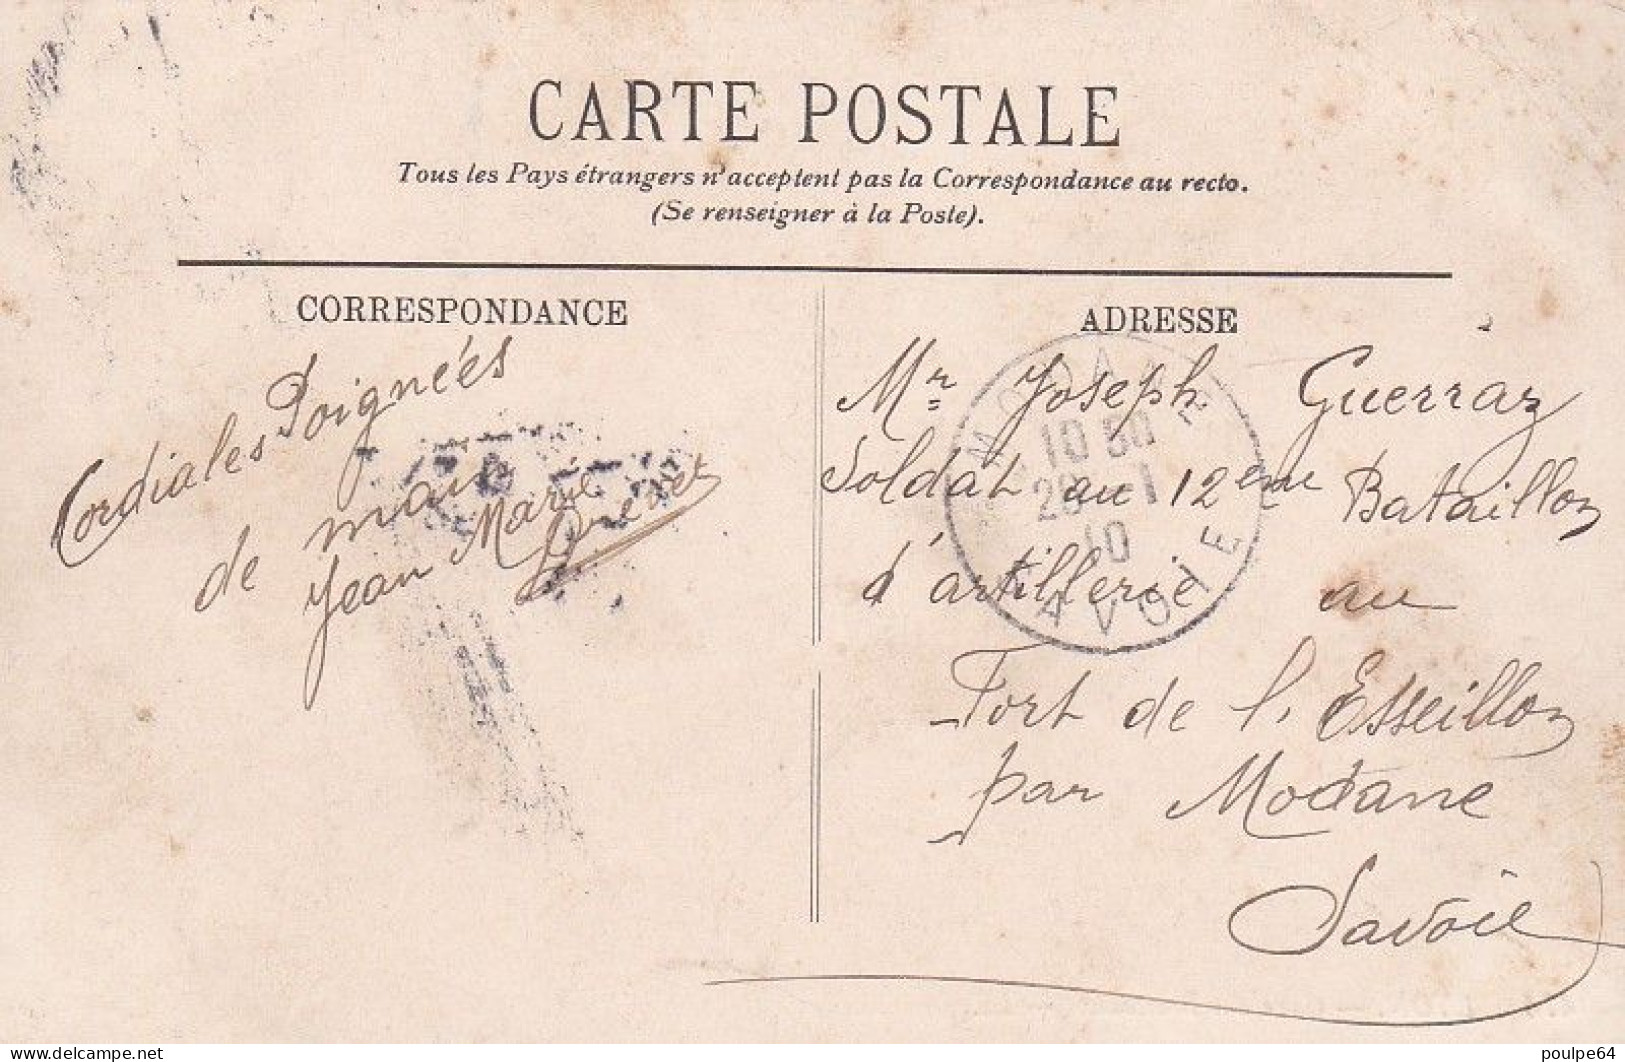 CARTE POSTALE
Tous les Pays étrangers n'acceptent pas la Correspondance au recto.
(Se renseigner à la Poste).
CORRESPONDANCE
Cordiales Poignées
de main
Jean Marie
ADRESSE
Mr Joseph Guerraz
Soldat au 12ème Bataillon
d'artillerie au
Fort de l'Esseillon
par Modane
Savoie
MODANE
10
SAVOIE
delcampe.net
poulpe64